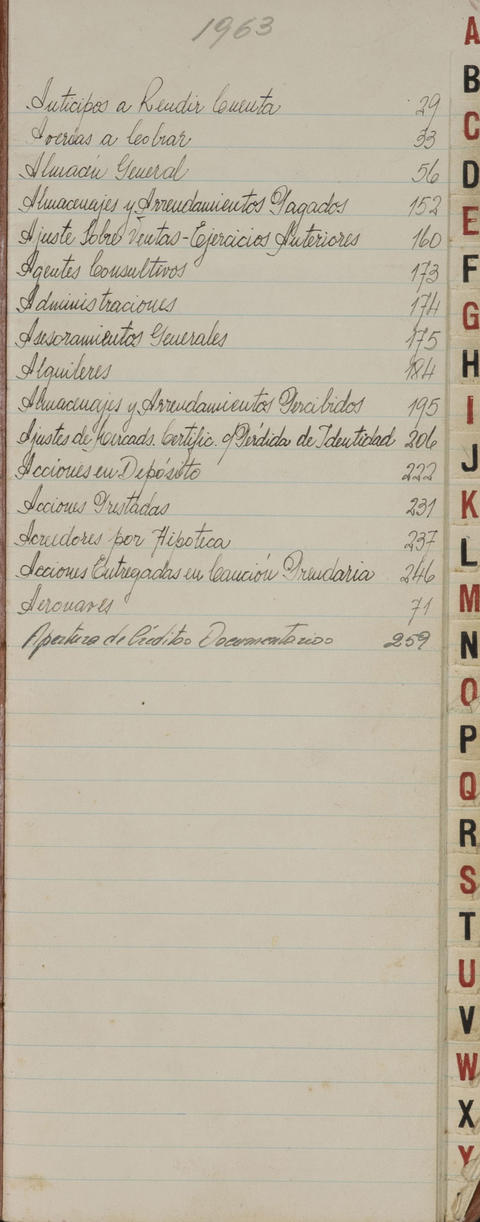 1963
Anticipos a Rendir Cuenta 29
Averías a Cobrar 33
Almacén General 56
Almacenajes y Arrendamientos Pagados 152
Ajuste Sobre Ventas-Ejercicios Anteriores 160
Agentes Consultivos 173
Administraciones 174
Asesoramientos Generales 175
Alquileres 184
Almacenajes y Arrendamientos Percibidos 195
Ajustes de Mercads. Certific. c/Pérdida de Identidad 206
Acciones en Depósito 222
Acciones Prestadas 231
Acreedores por Hipoteca 237
Acciones Entregadas en Caución Prendaria 246
Aeronaves 71
Apertura de Créditos Documentarios 259
A
B
C
D
E
F
G
H
I
J
K
L
M
N
O
P
Q
R
S
T
U
V
W
X
Y